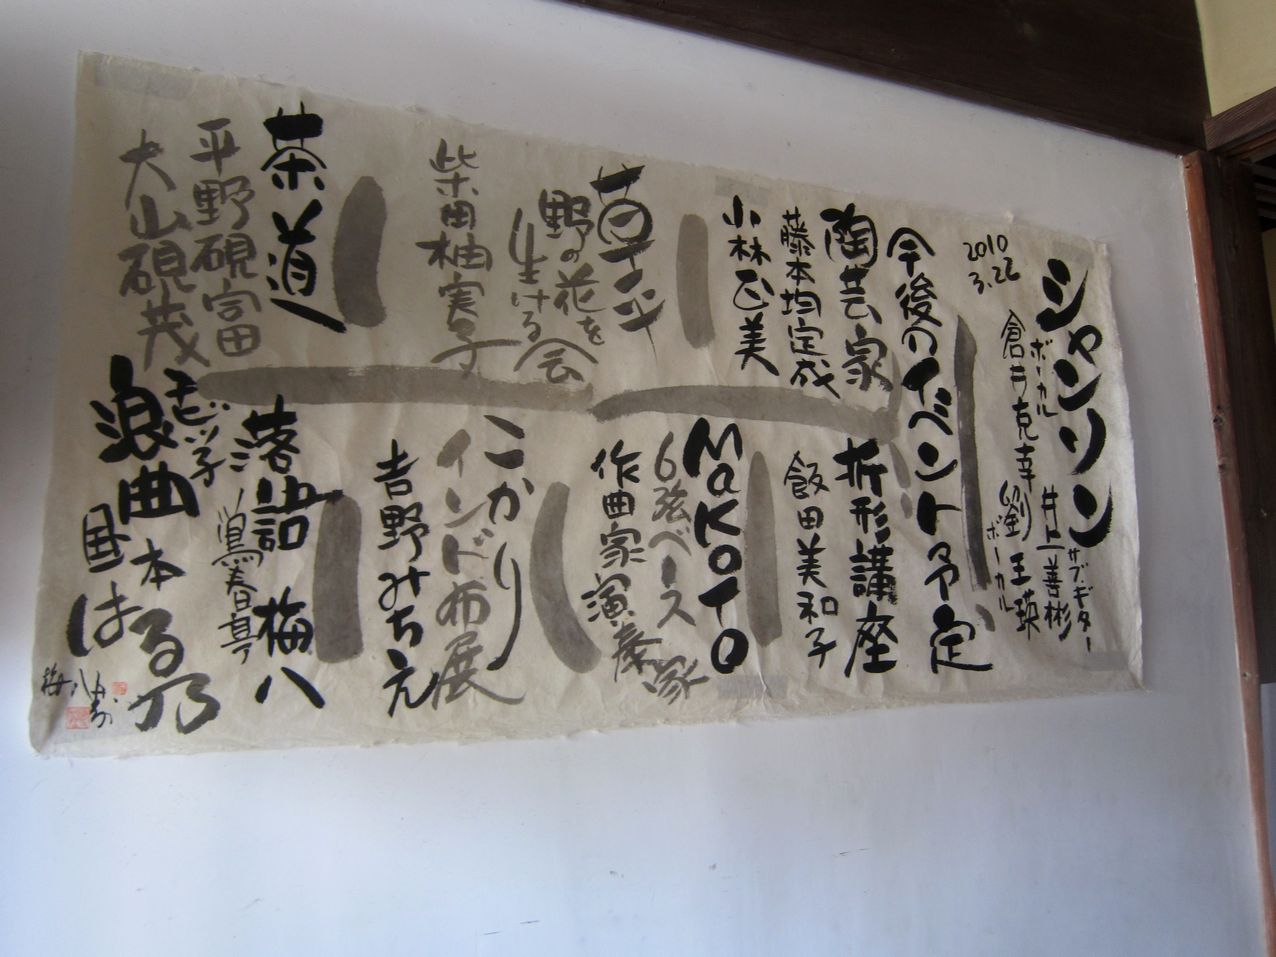 シャンリン
2010
3.22
ボーカル
倉井克幸
サブギター
井上善彬
劉王瑛
ボーカル
今後のイベント予定
陶芸家
藤本均定成
小林正美
折形講座
飯田美和子
Makoto
6弦ベース
作曲家演奏家
野の花を
生ける会
柴田柚実子
こかりり
インド布展
吉野みちえ
茶道
平野硯富
大山硯茂
落語 梅八
春日亭
浪曲
国本はる乃
梅八